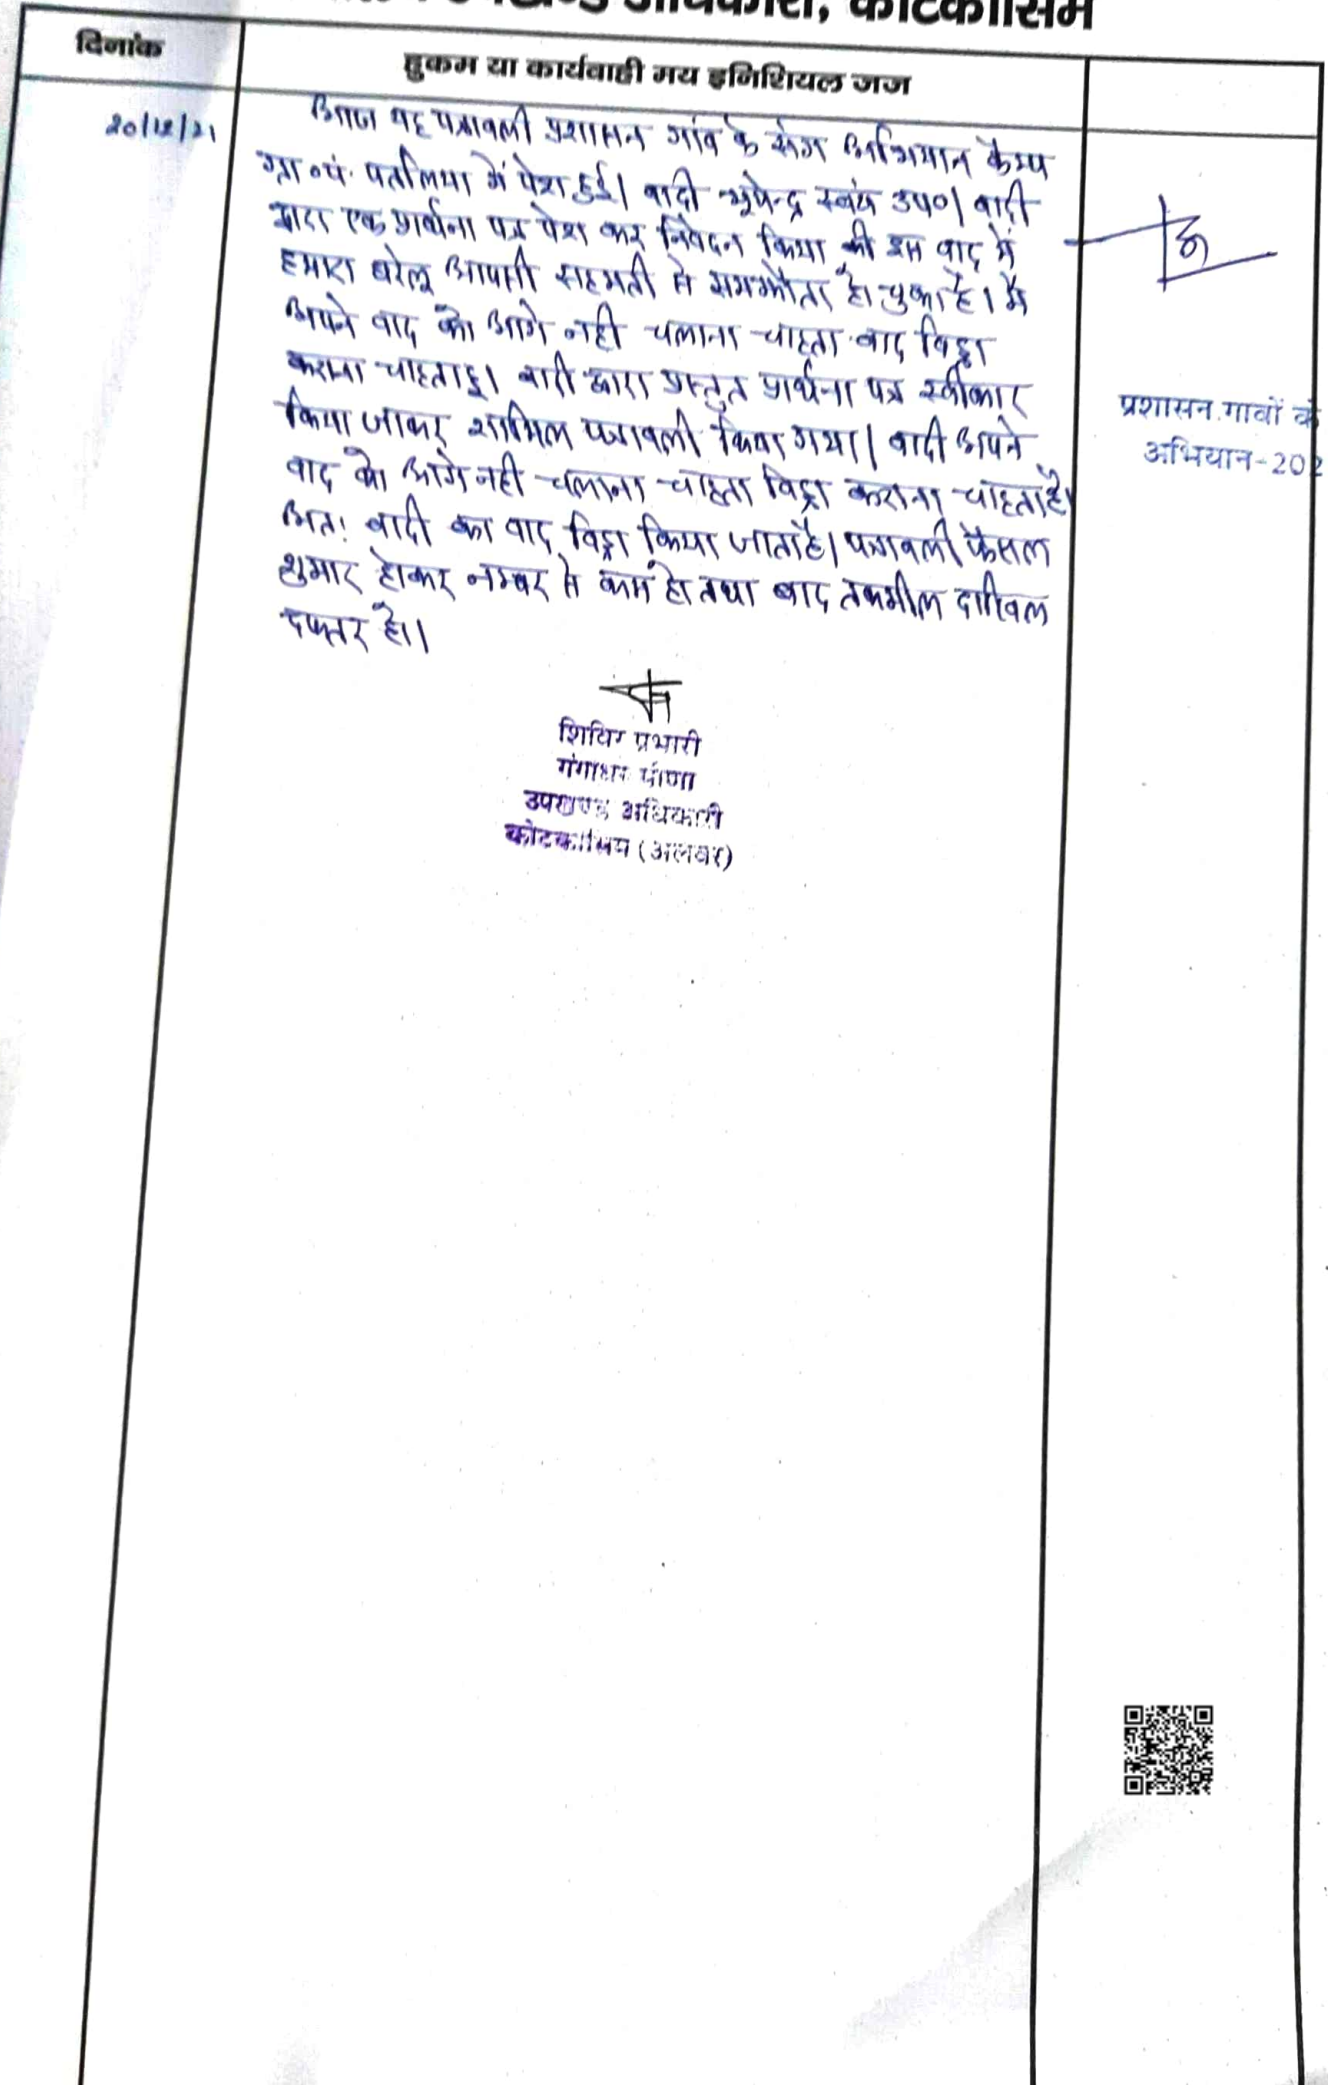 उपखण्ड अधिकारी, कोटकासिम
दिनांक
हुकम या कार्यवाही मय इनिशियल जज
20/12/21
आज यह पत्रावली प्रशासन गांव के संग अभियान कैम्प
ग्रा०पं. पतलिया में पेश हुई। वादी भूपेन्द्र स्वंय उप०। वादी
द्वारा एक प्रार्थना पत्र पेश कर निवेदन किया की इस वाद में
हमारा घरेलू आपसी सहमती से समझौता हो चुका है। मैं
अपने वाद को आगे नही चलाना चाहता वाद विड्रा
कराना चाहताहु। वादी द्वारा प्रस्तुत प्रार्थना पत्र स्वीकार
किया जाकर शामिल पत्रावली किया गया। वादी अपने
वाद को आगे नही चलाना चाहता विड्रा कराना चाहता है।
अतः वादी का वाद विड्रा किया जाता है। पत्रावली फैसल
शुमार होकर नम्बर से कम हो तथा बाद तकमील दाखिल
दफ्तर हो।
शिविर प्रभारी
गंगाधर मीणा
उपखण्ड अधिकारी
कोटकासिम (अलवर)
प्रशासन गावों के
अभियान-202